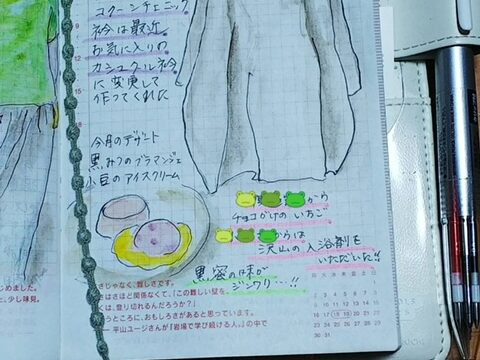 コクーンチュニック
衿は最近
お気に入りの
カシュクル衿
に変更して
作ってくれた
今月のデザート
黒みつのブラマンジェ
小豆のアイスクリーム
から
チョコがけのいちご
からは
沢山の入浴剤を
いただいた!!
黒蜜の味が
ジンワリ…!!
じめました。
と、少し味見。
さじゃなく、難しさです。
さはさほど関係なくて、「この難しい壁を、
くは、登り切れるんだろうか?」
うところに、おもしろさがあると思っています。
——平山ユージさんが『岩場で学び続ける人。』の中で